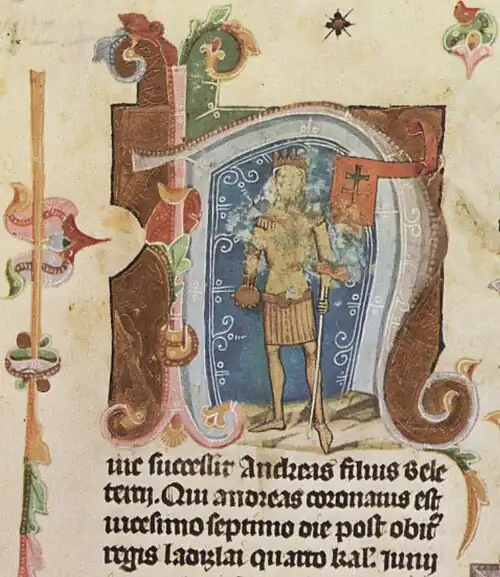 Huic successit Andreas filius Bele
tertij. Qui andreas coronatus est
uicesimo septimo die post obitū
regis ladizlai quarto kal'. Junij